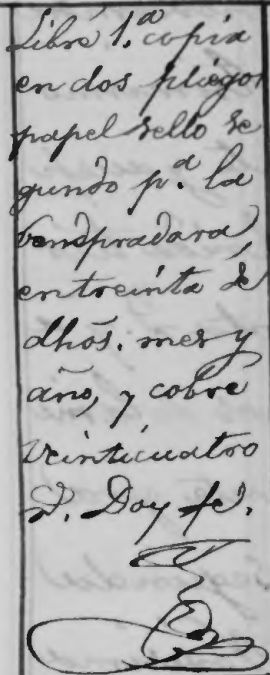 Libré 1.ª copia
en dos pliegos
papel sello se
gundo p.ª la
compradara,
en treinta de
dhos. mes y
año, y cobré
veinticuatro
P. Doy fé.